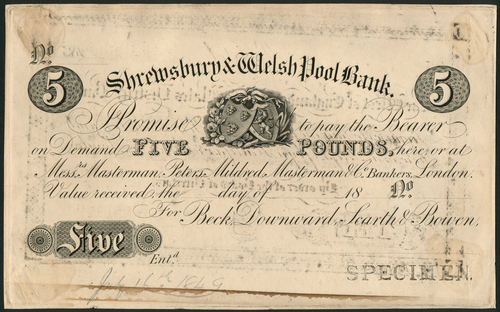 No
Shrewsbury & Welsh Pool Bank.
5 5
I Promise to pay the Bearer
on Demand FIVE POUNDS, here, or at
Messrs Masterman, Peters, Mildred, Masterman & Co. Bankers, London.
Value received the day of 18 No
For Beck, Downward, Scarth & Bowen,
Five
Entd
SPECIMEN.